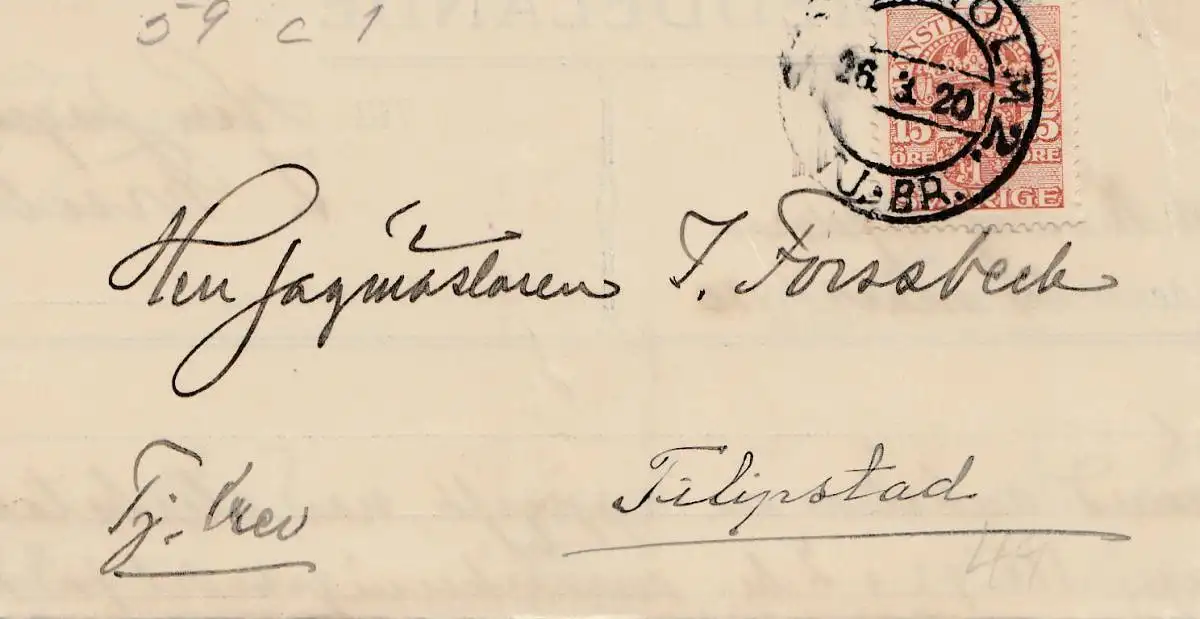 59 c 1
HOLM 2.
26. 3. 20
TJ.BR.
15 15
ÖRE ÖRE
SVERIGE
Herr Jägmästaren J. Forssbeck
Tj. brev
Filipstad
44